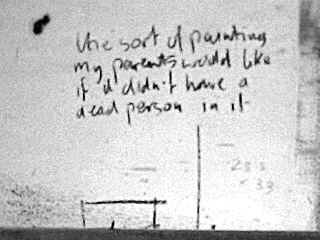 the sort of painting
my parents would like
if it didn't have a
dead person in it
233
× 33